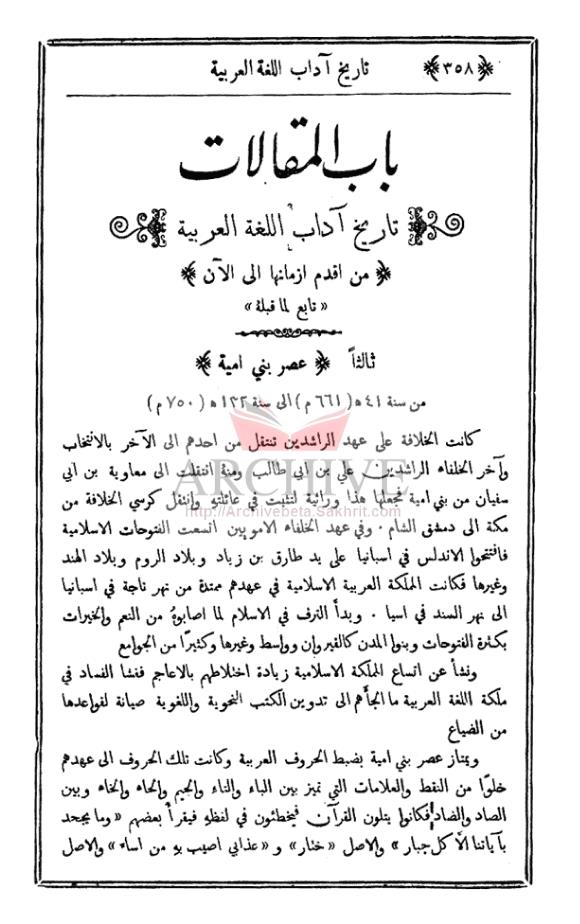 ﴿٣٥٨﴾ تاريخ آداب اللغة العربية
باب المقالات
تاريخ آداب اللغة العربية
﴿ من اقدم ازمانها الى الآن ﴾
« تابع لما قبلهُ »
ثالثاً ﴿ عصر بني امية ﴾
من سنة ٤١ ھ ( ٦٦١ م ) الى سنة ١٣٢ ھ ( ٧٥٠ م )
كانت الخلافة على عهد الراشدين تنتقل من احدهم الى الآخر بالانتخاب
وآخر الخلفاء الراشدين علي بن ابي طالب ومنهُ انتقلت الى معاوية بن ابي
سفيان من بني امية فجعلها هذا وراثية لتثبت في عائلتهِ وانتقل كرسي الخلافة من
مكة الى دمشق الشام . وفي عهد الخلفاء الامويين اتسعت الفتوحات الاسلامية
فافتتحوا الاندلس في اسبانيا على يد طارق بن زياد وبلاد الروم وبلاد الهند
وغيرها فكانت المملكة العربية الاسلامية في عهدهم ممتدة من نهر تاجة في اسبانيا
الى نهر السند في اسيا . وبدأ الترف في الاسلام لما اصابوهُ من النعم والخيرات
بكثرة الفتوحات وبنوا المدن كالقيروان وواسط وغيرها وكثيرًا من الجوامع
ونشأ عن اتساع المملكة الاسلامية زيادة اختلاطهم بالاعاجم ففشا الفساد في
ملكة اللغة العربية ما الجأهم الى تدوين الكتب النحوية واللغوية صيانة لقواعدها
من الضياع
ويمتاز عصر بني امية بضبط الحروف العربية وكانت تلك الحروف الى عهدهم
خلوًا من النقط والعلامات التي تميز بين الباء والتاء والجيم والحاء والخاء وبين
الصاد والضاد فكانوا يتلون القرآن فيخطئون في لفظهِ فيقرأ بعضهم « وما يجحد
بآياتنا الا كل جبار » والاصل « ختار » و « عذابي اصيب بهِ من اساء » والاصل
ARCHIVE
http://Archivebeta.Sakhrit.com